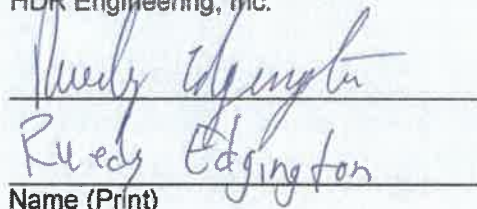 HDR Engineering, Inc.
Ruedy Edgington
Ruedy Edgington
Name (Print)